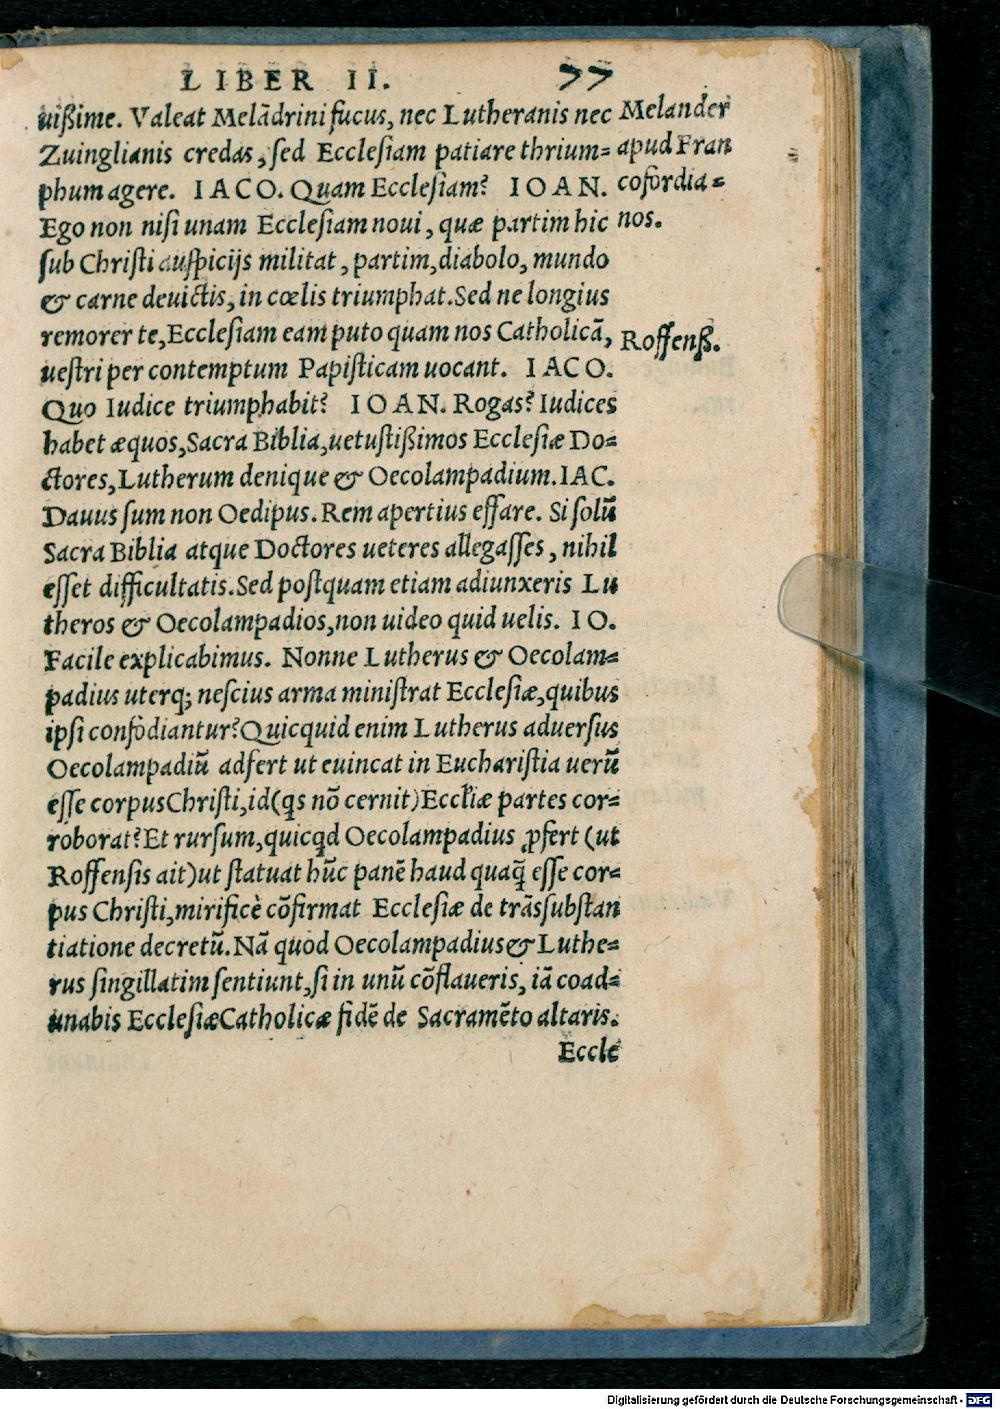 LIBER II. 77
uißime. Valeat Melādrini fucus, nec Lutheranis nec
Zuinglianis credas, sed Ecclesiam patiare thrium=
phum agere. IACO. Quam Ecclesiam? IOAN.
Ego non nisi unam Ecclesiam noui, quæ partim hic
sub Christi auspicijs militat, partim, diabolo, mundo
& carne deuictis, in cœlis triumphat. Sed ne longius
remorer te, Ecclesiam eam puto quam nos Catholicā,
uestri per contemptum Papisticam uocant. IACO.
Quo Iudice triumphabit? IOAN. Rogas? Iudices
habet æquos, Sacra Biblia, uetustißimos Ecclesiæ Do=
ctores, Lutherum denique & Oecolampadium. IAC.
Dauus sum non Oedipus. Rem apertius effare. Si solū
Sacra Biblia atque Doctores ueteres allegasses, nihil
esset difficultatis. Sed postquam etiam adiunxeris Lu
theros & Oecolampadios, non uideo quid uelis. IO.
Facile explicabimus. Nonne Lutherus & Oecolam=
padius uterq; nescius arma ministrat Ecclesiæ, quibus
ipsi confodiantur? Quicquid enim Lutherus aduersus
Oecolampadiū adfert ut euincat in Eucharistia uerū
esse corpus Christi, id (qs nō cernit) Eccliæ partes cor=
roborat? Et rursum, quicqd Oecolampadius ꝓfert (ut
Roffensis ait) ut statuat hūc panē haud quaq̄ esse cor=
pus Christi, mirificè cōfirmat Ecclesiæ de trāssubstan
tiatione decretū. Nā quod Oecolampadius & Luthe=
rus singillatim sentiunt, si in unū cōflaueris, iā coad=
unabis Ecclesiæ Catholicæ fidē de Sacramēto altaris.
Eccle
Melander
apud Fran
cofordia=
nos.
Roffenß.
Digitalisierung gefördert durch die Deutsche Forschungsgemeinschaft - DFG